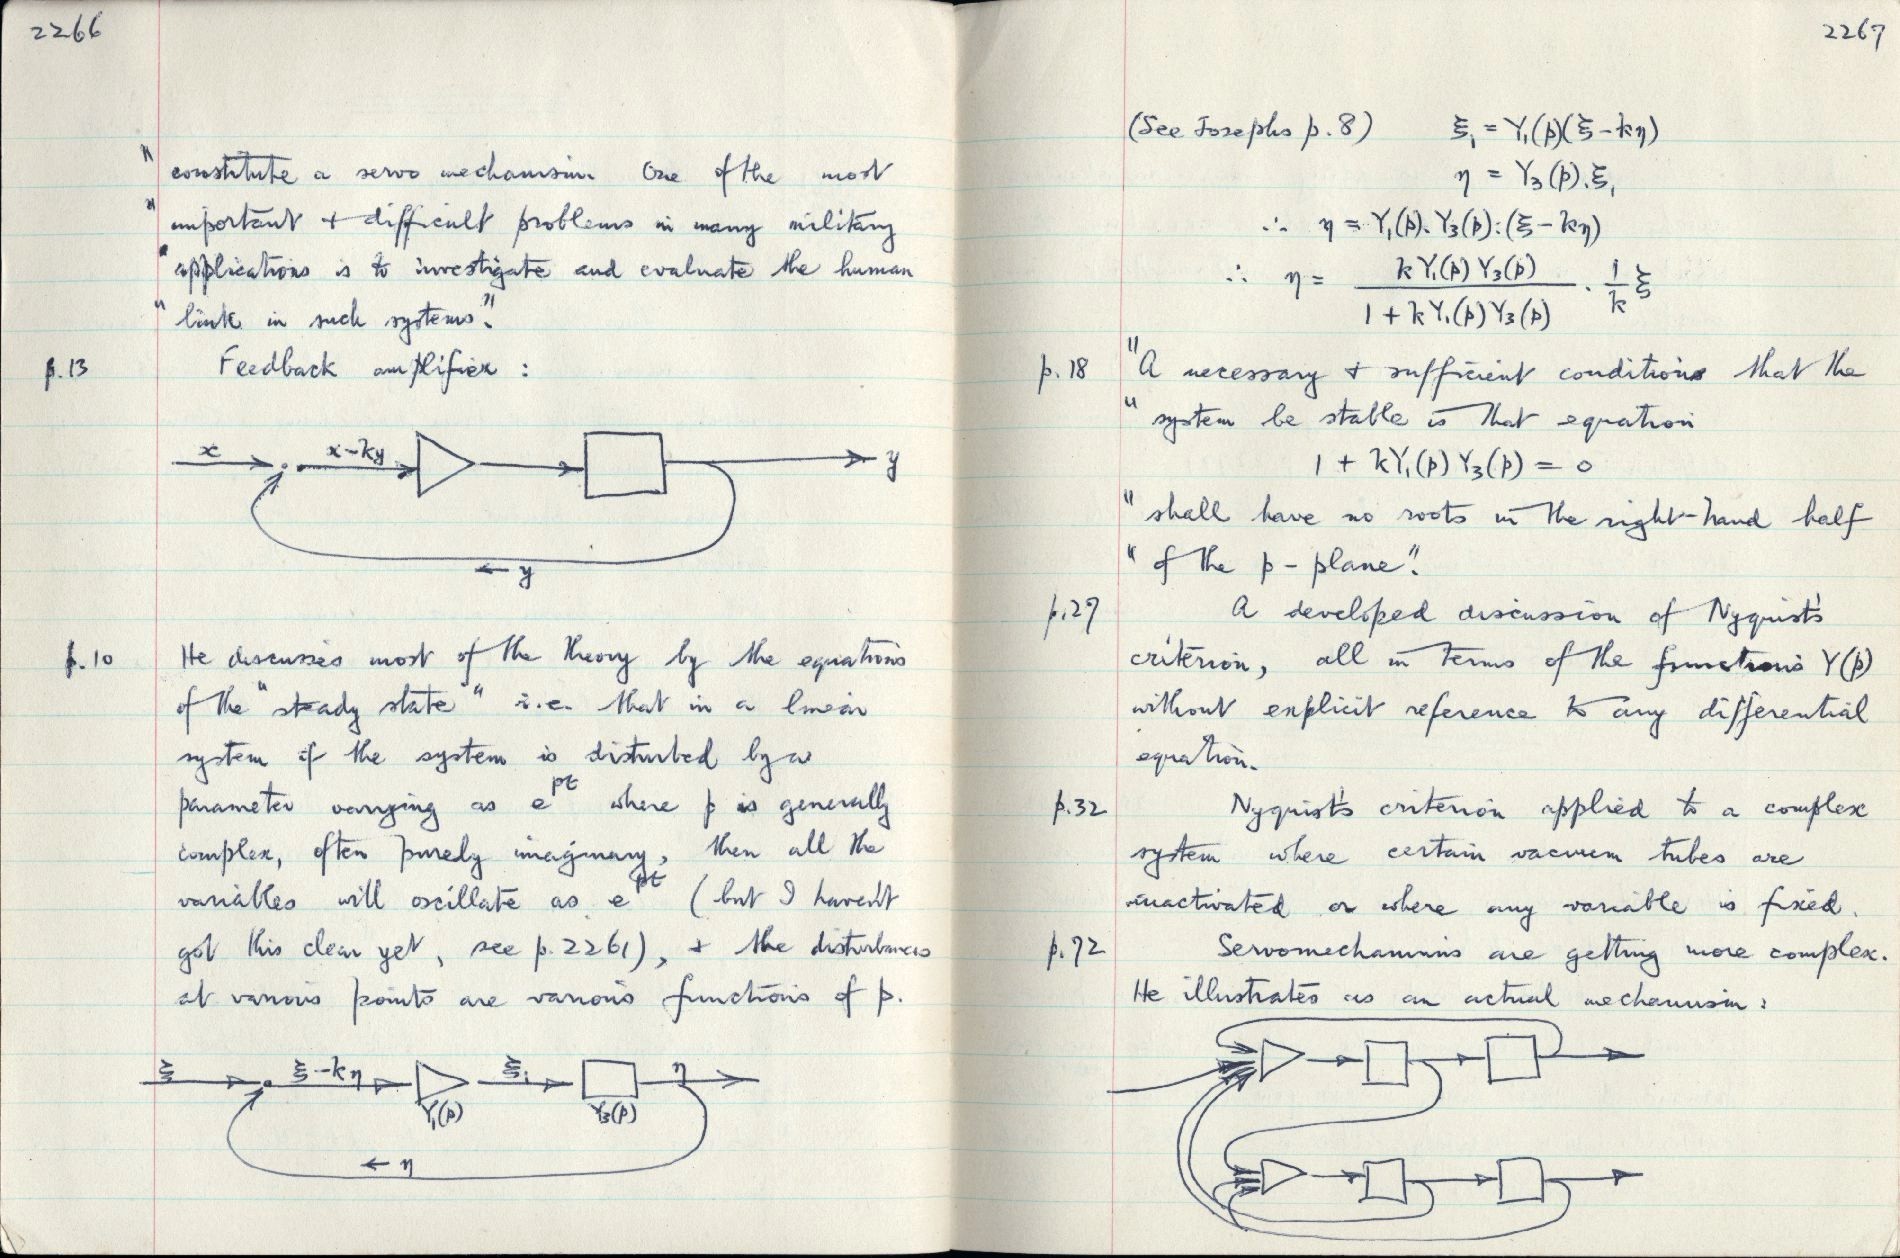 2266
" constitute a servo mechanism. One of the most
" important & difficult problems in many military
" applications is to investigate and evaluate the human
" link in such systems."
p.13 Feedback amplifier :
x x-ky y
← y
p.10 He discusses most of the theory by the equations
of the "steady state" i.e. that in a linear
system if the system is disturbed by a
parameter varying as e^pt where p is generally
complex, often purely imaginary, then all the
variables will oscillate as e^pt (but I haven't
got this clear yet, see p. 2261), & the disturbances
at various points are various functions of p.
ξ ξ-kη ξ₁ η
Y₁(p) Y₃(p)
← η
2267
(See Josephs p. 8) ξ₁ = Y₁(p)(ξ-kη)
η = Y₃(p).ξ₁
∴ η = Y₁(p).Y₃(p).(ξ-kη)
∴ η = kY₁(p)Y₃(p) / 1+kY₁(p)Y₃(p) . 1/k ξ
p.18 "A necessary & sufficient condition that the
" system be stable is that equation
1 + kY₁(p)Y₃(p) = 0
" shall have no roots in the right-hand half
" of the p-plane".
p.27 A developed discussion of Nyquist's
criterion, all in terms of the functions Y(p)
without explicit reference to any differential
equation.
p.32 Nyquist's criterion applied to a complex
system where certain vacuum tubes are
inactivated or where any variable is fixed.
p.72 Servomechanisms are getting more complex.
He illustrates as an actual mechanism: